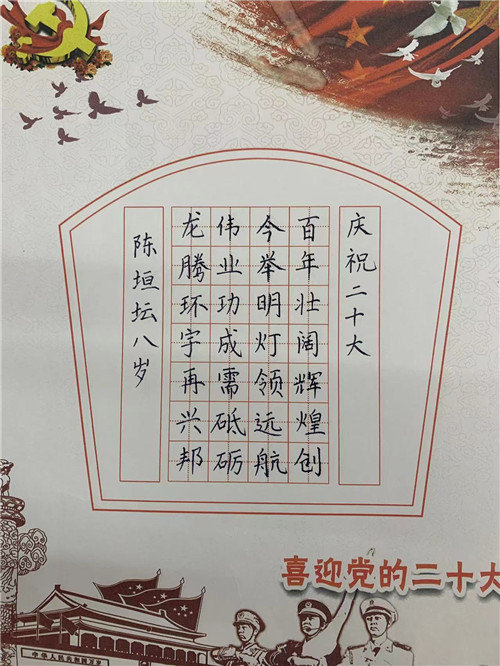 庆祝二十大
百年壮阔辉煌创
今举明灯领远航
伟业功成需砥砺
龙腾环宇再兴邦
陈垣坛八岁
喜迎党的二十大